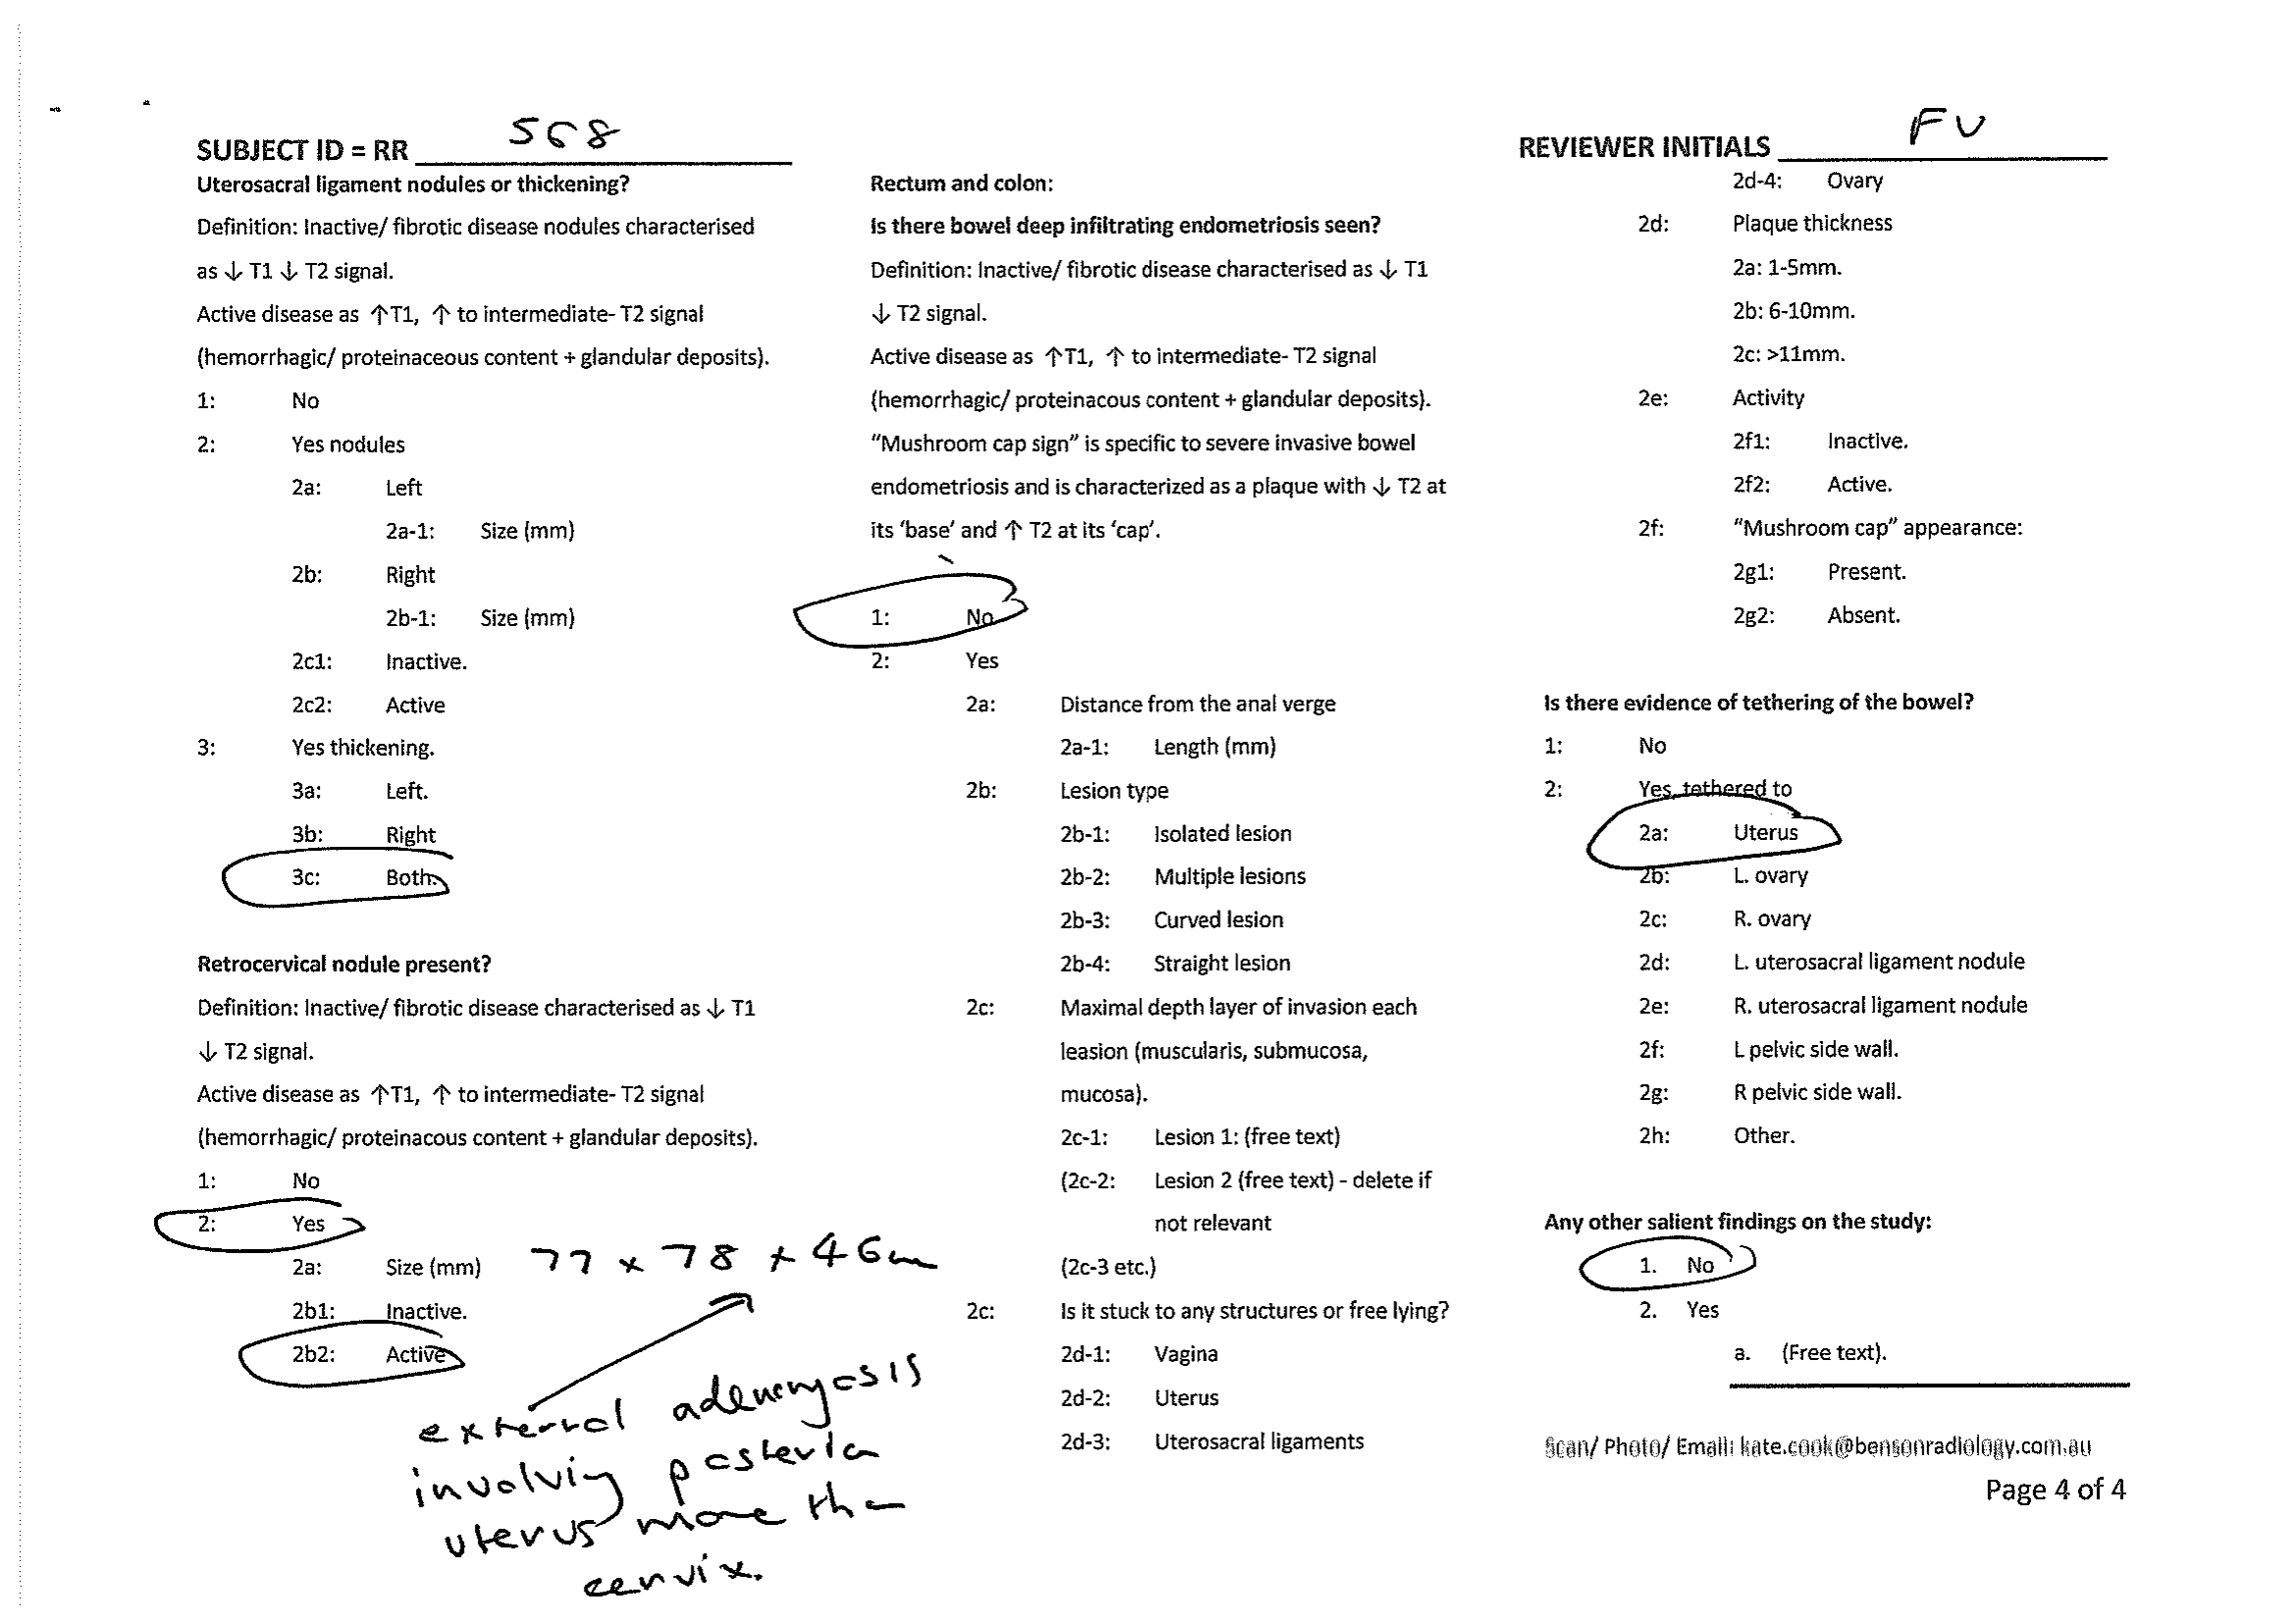 SUBJECT ID = RR 568
REVIEWER INITIALS FU
Uterosacral ligament nodules or thickening?
Definition: Inactive/ fibrotic disease nodules characterised
as ↓ T1 ↓ T2 signal.
Active disease as ↑T1, ↑ to intermediate- T2 signal
(hemorrhagic/ proteinaceous content + glandular deposits).
1: No
2: Yes nodules
2a: Left
2a-1: Size (mm)
2b: Right
2b-1: Size (mm)
2c1: Inactive.
2c2: Active
3: Yes thickening.
3a: Left.
3b: Right
3c: Both.
Retrocervical nodule present?
Definition: Inactive/ fibrotic disease characterised as ↓ T1
↓ T2 signal.
Active disease as ↑T1, ↑ to intermediate- T2 signal
(hemorrhagic/ proteinacous content + glandular deposits).
1: No
2: Yes
2a: Size (mm) 77 x 78 x 46m
2b1: Inactive.
2b2: Active
external adenomyosis
involving posterior
uterus more than
cervix.
Rectum and colon:
Is there bowel deep infiltrating endometriosis seen?
Definition: Inactive/ fibrotic disease characterised as ↓ T1
↓ T2 signal.
Active disease as ↑T1, ↑ to intermediate- T2 signal
(hemorrhagic/ proteinacous content + glandular deposits).
“Mushroom cap sign” is specific to severe invasive bowel
endometriosis and is characterized as a plaque with ↓ T2 at
its ‘base’ and ↑ T2 at its ‘cap’.
1: No
2: Yes
2a: Distance from the anal verge
2a-1: Length (mm)
2b: Lesion type
2b-1: Isolated lesion
2b-2: Multiple lesions
2b-3: Curved lesion
2b-4: Straight lesion
2c: Maximal depth layer of invasion each
leasion (muscularis, submucosa,
mucosa).
2c-1: Lesion 1: (free text)
(2c-2: Lesion 2 (free text) - delete if
not relevant
(2c-3 etc.)
2c: Is it stuck to any structures or free lying?
2d-1: Vagina
2d-2: Uterus
2d-3: Uterosacral ligaments
2d-4: Ovary
2d: Plaque thickness
2a: 1-5mm.
2b: 6-10mm.
2c: >11mm.
2e: Activity
2f1: Inactive.
2f2: Active.
2f: “Mushroom cap” appearance:
2g1: Present.
2g2: Absent.
Is there evidence of tethering of the bowel?
1: No
2: Yes, tethered to
2a: Uterus
2b: L. ovary
2c: R. ovary
2d: L. uterosacral ligament nodule
2e: R. uterosacral ligament nodule
2f: L pelvic side wall.
2g: R pelvic side wall.
2h: Other.
Any other salient findings on the study:
1. No
2. Yes
a. (Free text).
Scan/ Photo/ Email: kate.cook@bensonradiology.com.au
Page 4 of 4